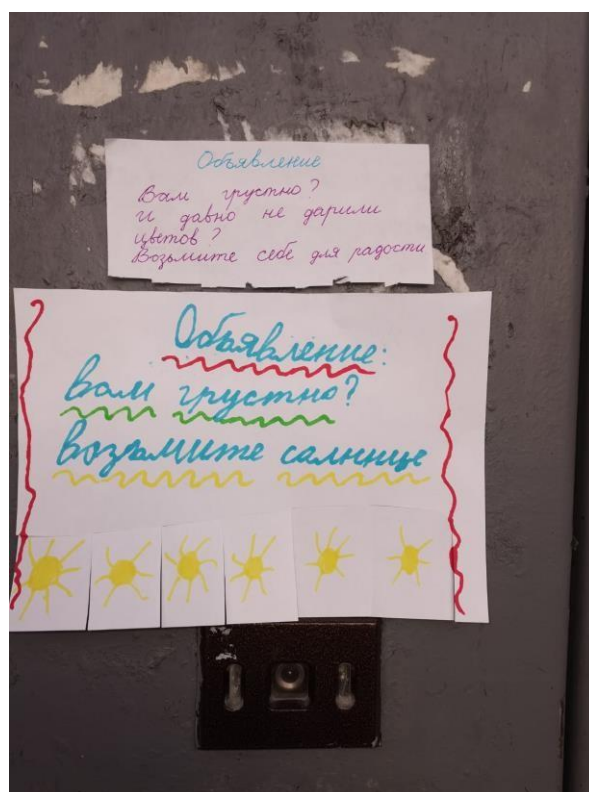 Объявление
Вам грустно?
и давно не дарили
цветов?
Возьмите себе для радости
Объявление:
вам грустно?
возьмите салнице